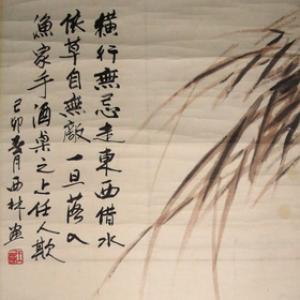 橫行無忌走東西借水
依草自無敵一旦落入
漁家手酒桌之上任人欺
己卯月西林画